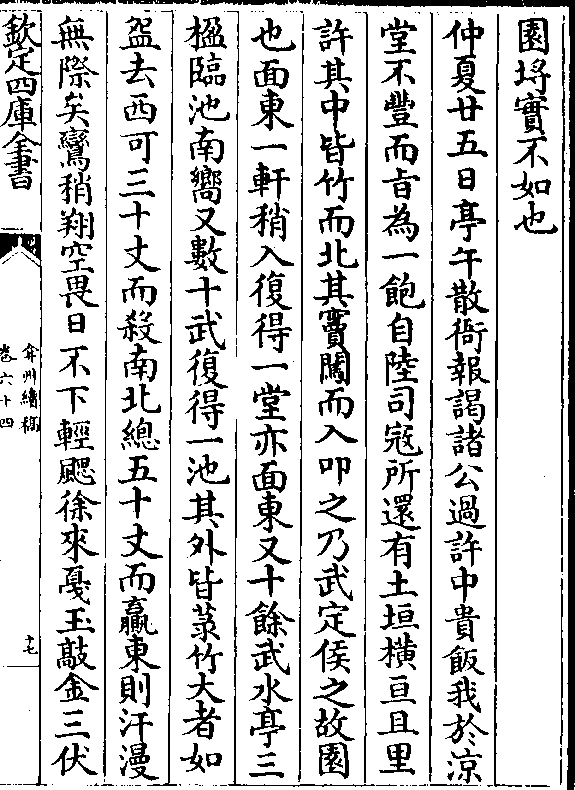 園埒實不如也
仲夏廿五日亭午散衙報謁諸公過許中貴飯我於凉
堂不豐而㫖為一飽自陸司寇所還有土垣横亘且里
許其中皆竹而北其竇闖而入叩之乃武定侯之故園
也面東一軒稍入復得一堂亦面東又十餘武水亭三
楹臨池南嚮又數十武復得一池其外皆菉竹大者如
盌去西可三十丈而殺南北總五十丈而贏東則汗漫
無際矣鸞稍翔空畏日不下輕颸徐來戛玉敲金三伏
欽定四庫全書
弇州續稿
卷六十四
十七